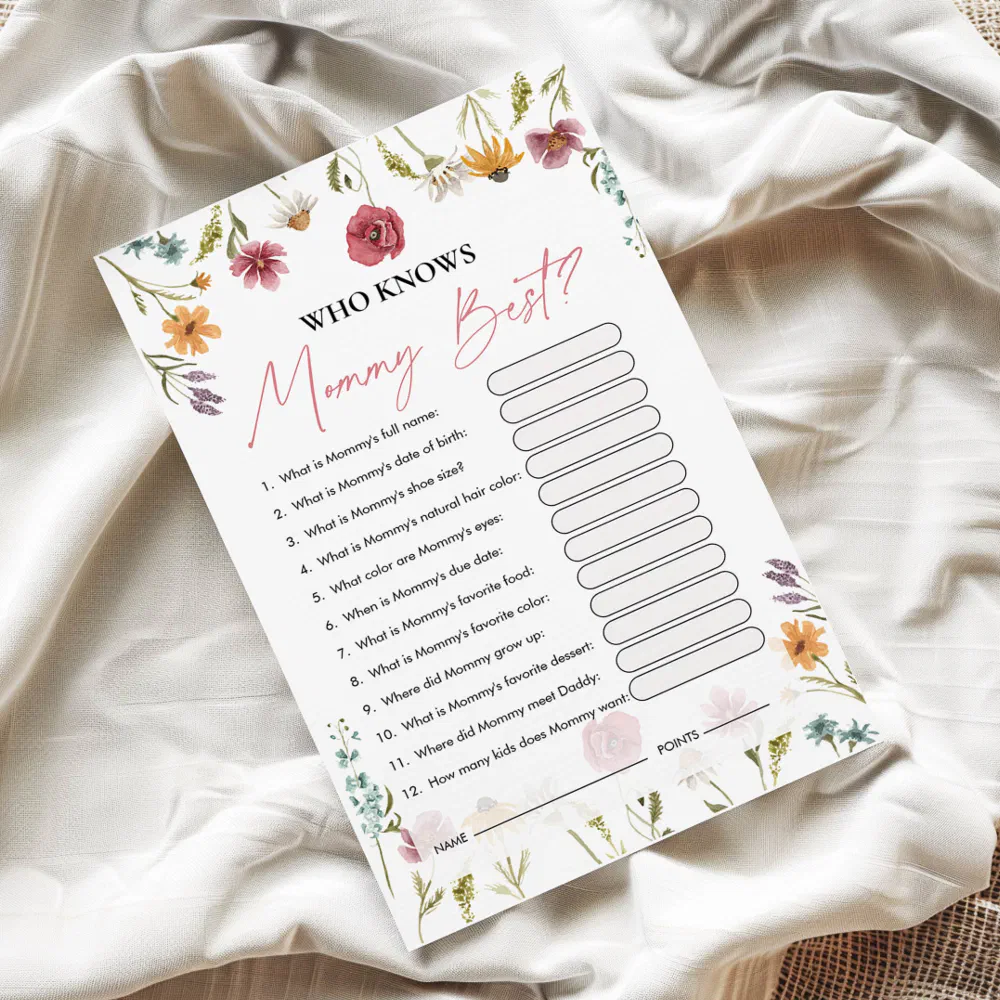 WHO KNOWS
Mommy Best?
1. What is Mommy's full name:
2. What is Mommy's date of birth:
3. What is Mommy's shoe size?
4. What is Mommy's natural hair color:
5. What color are Mommy's eyes:
6. When is Mommy's due date:
7. What is Mommy's favorite food:
8. What is Mommy's favorite color:
9. Where did Mommy grow up:
10. What is Mommy's favorite dessert:
11. Where did Mommy meet Daddy:
12. How many kids does Mommy want:
NAME POINTS